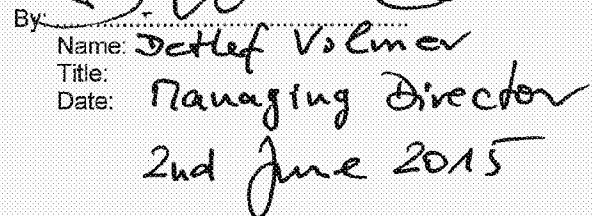 By:
Name: Detlef Volmer
Title:
Date: Managing Director
2nd June 2015